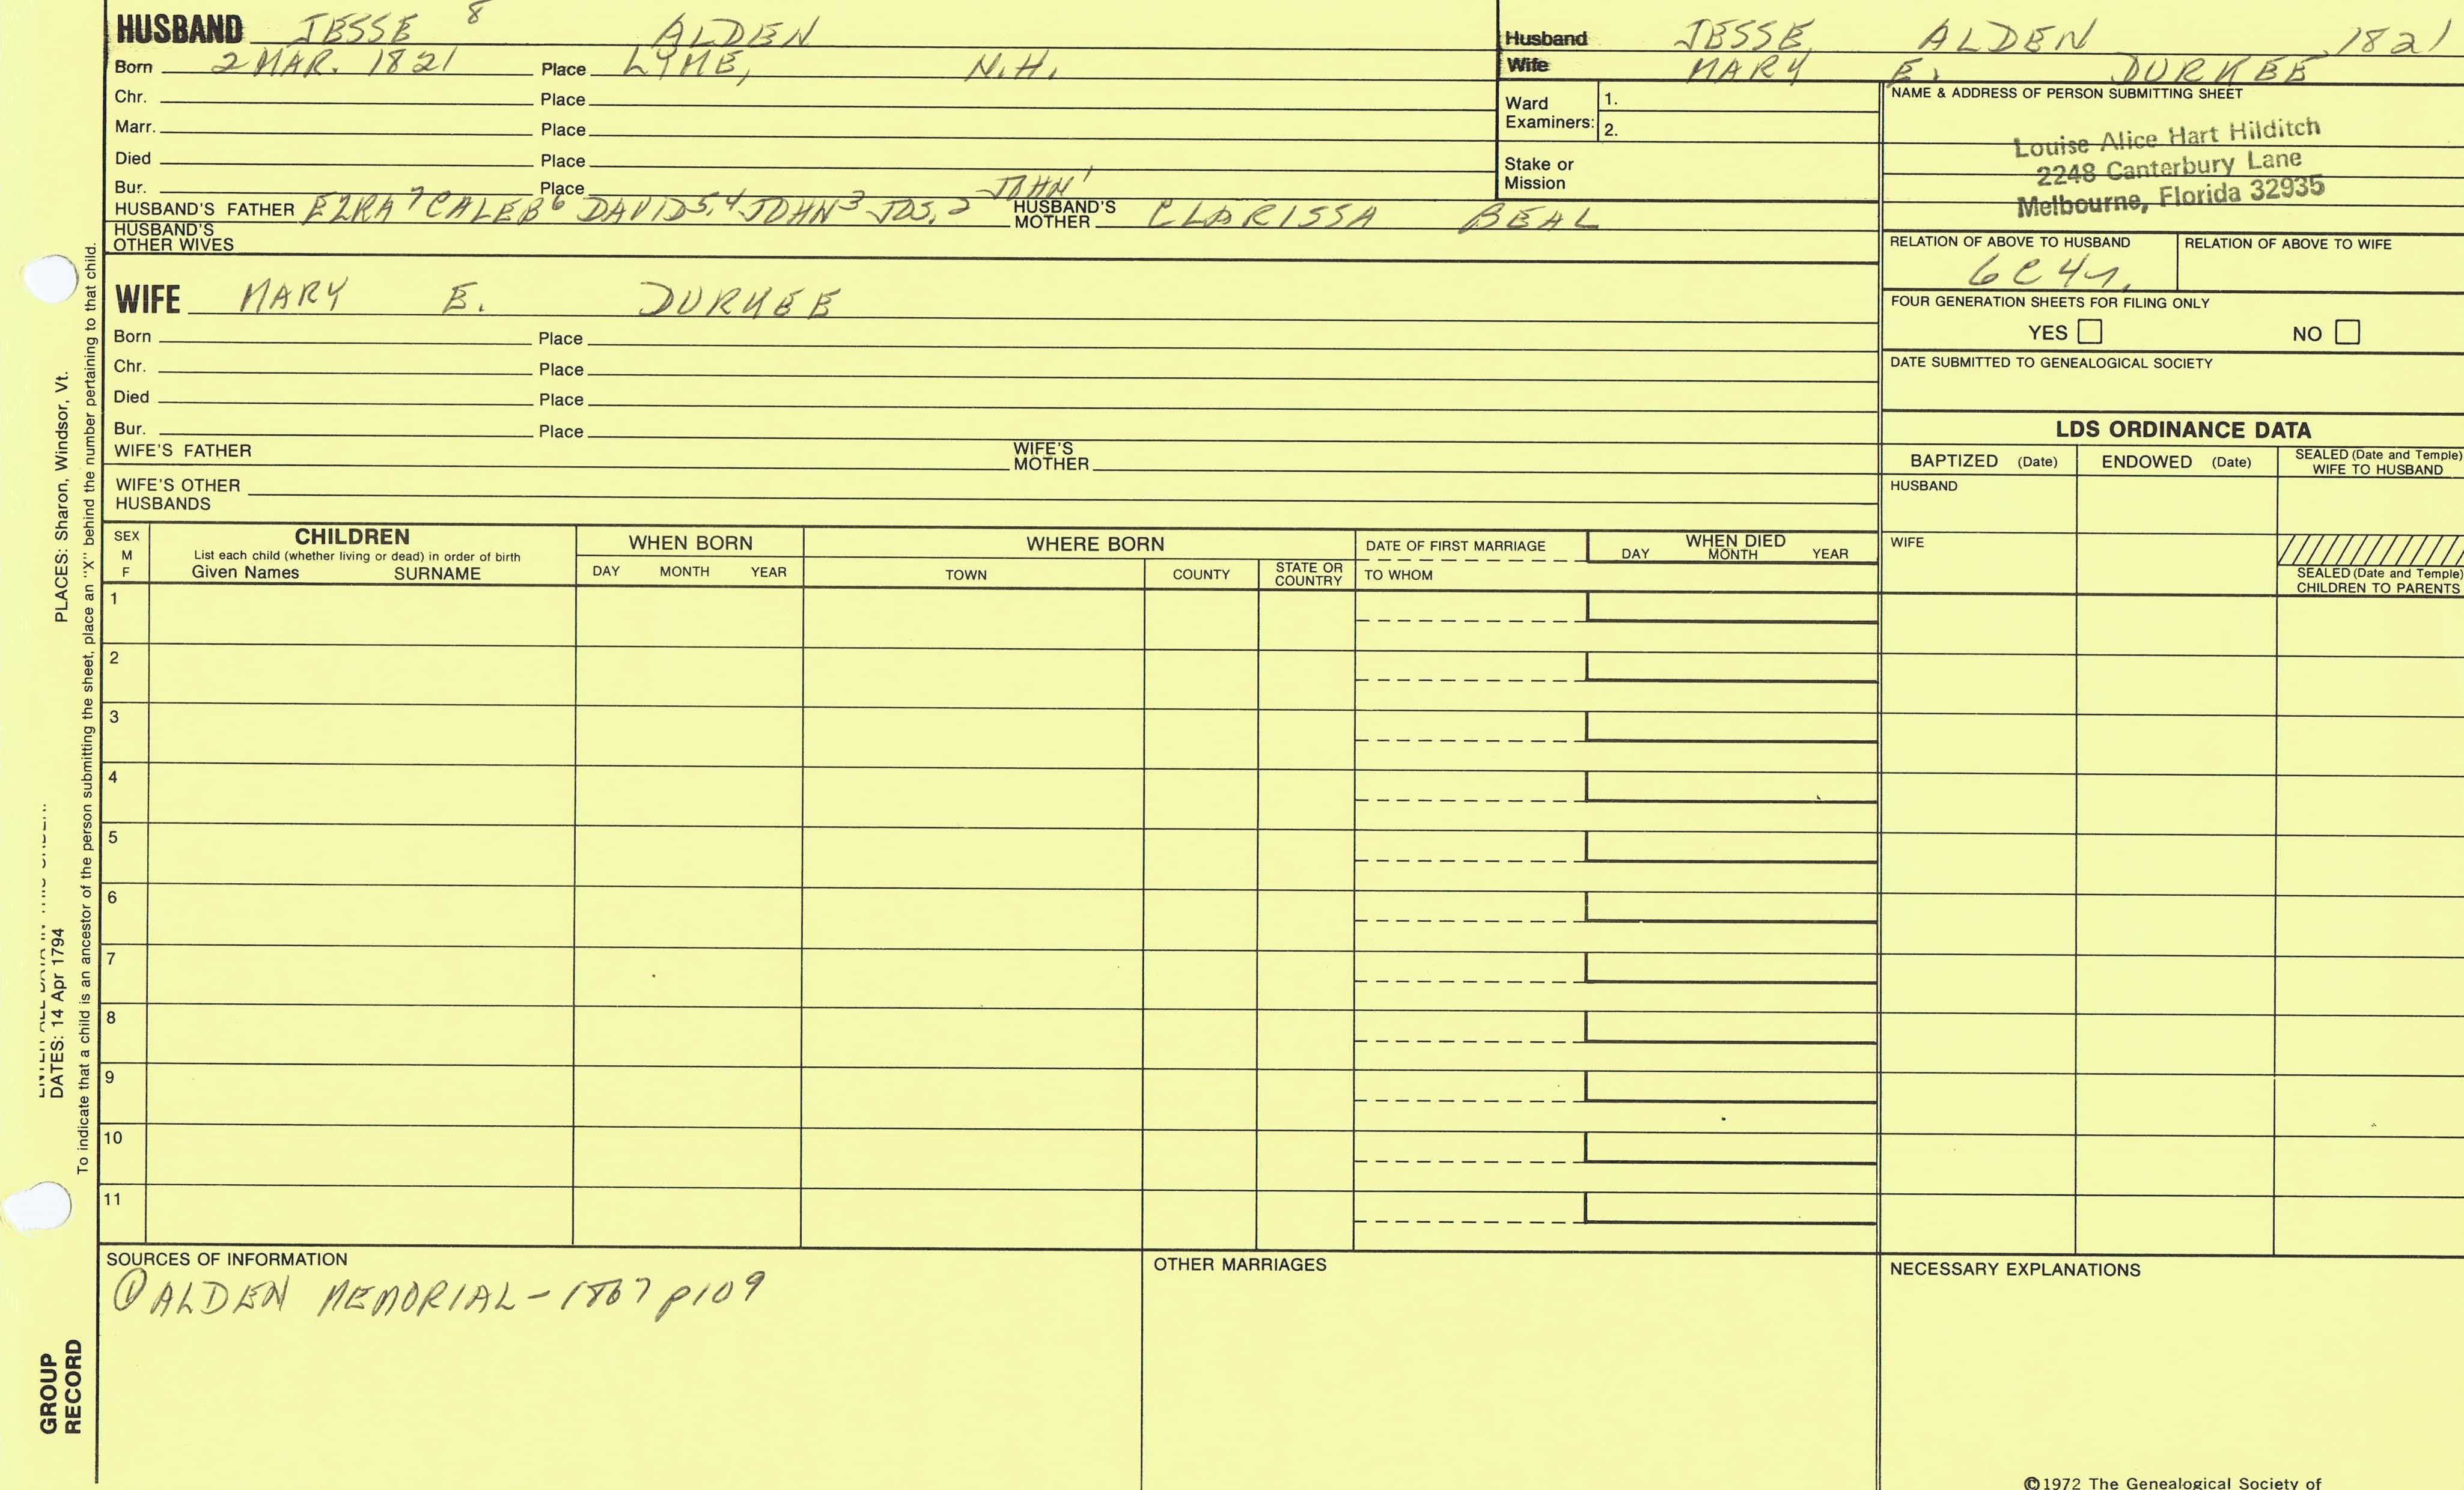 HUSBAND JESSE 8 ALDEN
Born 2 MAR. 1821 Place LYME, N.H.
Chr. Place
Marr. Place
Died Place
Bur. Place
HUSBAND'S FATHER EZRA 7 CALEB 6 DAVID 5,4 JOHN 3 JOS. 2 JOHN 1 HUSBAND'S MOTHER CLARISSA BEAL
HUSBAND'S OTHER WIVES
Husband JESSE ALDEN 1821
Wife MARY E. DURKEE
Ward Examiners: 1.
2.
Stake or Mission
NAME & ADDRESS OF PERSON SUBMITTING SHEET
Louise Alice Hart Hilditch
2248 Canterbury Lane
Melbourne, Florida 32935
RELATION OF ABOVE TO HUSBAND RELATION OF ABOVE TO WIFE
6C4r.
FOUR GENERATION SHEETS FOR FILING ONLY
YES NO
DATE SUBMITTED TO GENEALOGICAL SOCIETY
WIFE MARY E. DURKEE
Born Place
Chr. Place
Died Place
Bur. Place
WIFE'S FATHER WIFE'S MOTHER
WIFE'S OTHER HUSBANDS
LDS ORDINANCE DATA
BAPTIZED (Date) ENDOWED (Date) SEALED (Date and Temple) WIFE TO HUSBAND
HUSBAND
WIFE
SEALED (Date and Temple) CHILDREN TO PARENTS
SEX M F
CHILDREN
List each child (whether living or dead) in order of birth
Given Names SURNAME
WHEN BORN
DAY MONTH YEAR
WHERE BORN
TOWN COUNTY STATE OR COUNTRY
DATE OF FIRST MARRIAGE
TO WHOM
WHEN DIED
DAY MONTH YEAR
1
2
3
4
5
6
7
8
9
10
11
SOURCES OF INFORMATION
① ALDEN MEMORIAL - 1867 p109
OTHER MARRIAGES
NECESSARY EXPLANATIONS
©1972 The Genealogical Society of
PLACES: Sharon, Windsor, Vt.
DATES: 14 Apr 1794
To indicate that a child is an ancestor of the person submitting the sheet, place an "X" behind the number pertaining to that child.
GROUP
RECORD